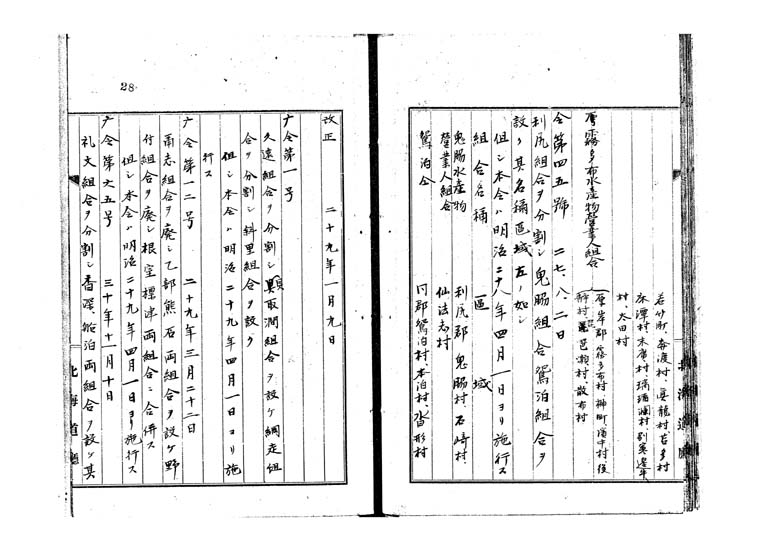 若竹町、奔渡村、
床潭村、末廣村、
村、太田村
厚霧多布水産物營業人組合
厚岸郡霧多布村、榊町、濱中村、後
静村、琵琶瀬村、散布村
仝第四五號 二七、八、二日
利尻組合ヲ分割シ鬼脇組合鴛泊組合ヲ
設ク其名稱區域左ノ如シ
但シ本令ハ明治二十八年四月一日ヨリ施行ス
組合名稱 區域
鬼脇水産物 利尻郡鬼脇村、石崎村、
營業人組合 仙法志村
鴛泊仝 同郡鴛泊村、本泊村、沓形村
28
改正 二十九年一月九日
庁令第一号
久遠組合ヲ分割シ貝取澗組合ヲ設ケ網走組
合ヲ分割シ斜里組合ヲ設ク
但シ本令ハ明治二十九年四月一日ヨリ施
行ス
庁令第一二号 二十九年三月二十二日
爾志組合ヲ廃シ乙部熊石両組合ヲ設ケ野
付組合ヲ廃シ根室標津両組合ニ合併ス
但シ本令ハ明治二十九年四月一日ヨリ施行ス
庁令第六五号 三十年十一月十日
礼文組合ヲ分割シ香深、船泊両組合ヲ設ケ其
北海道廳